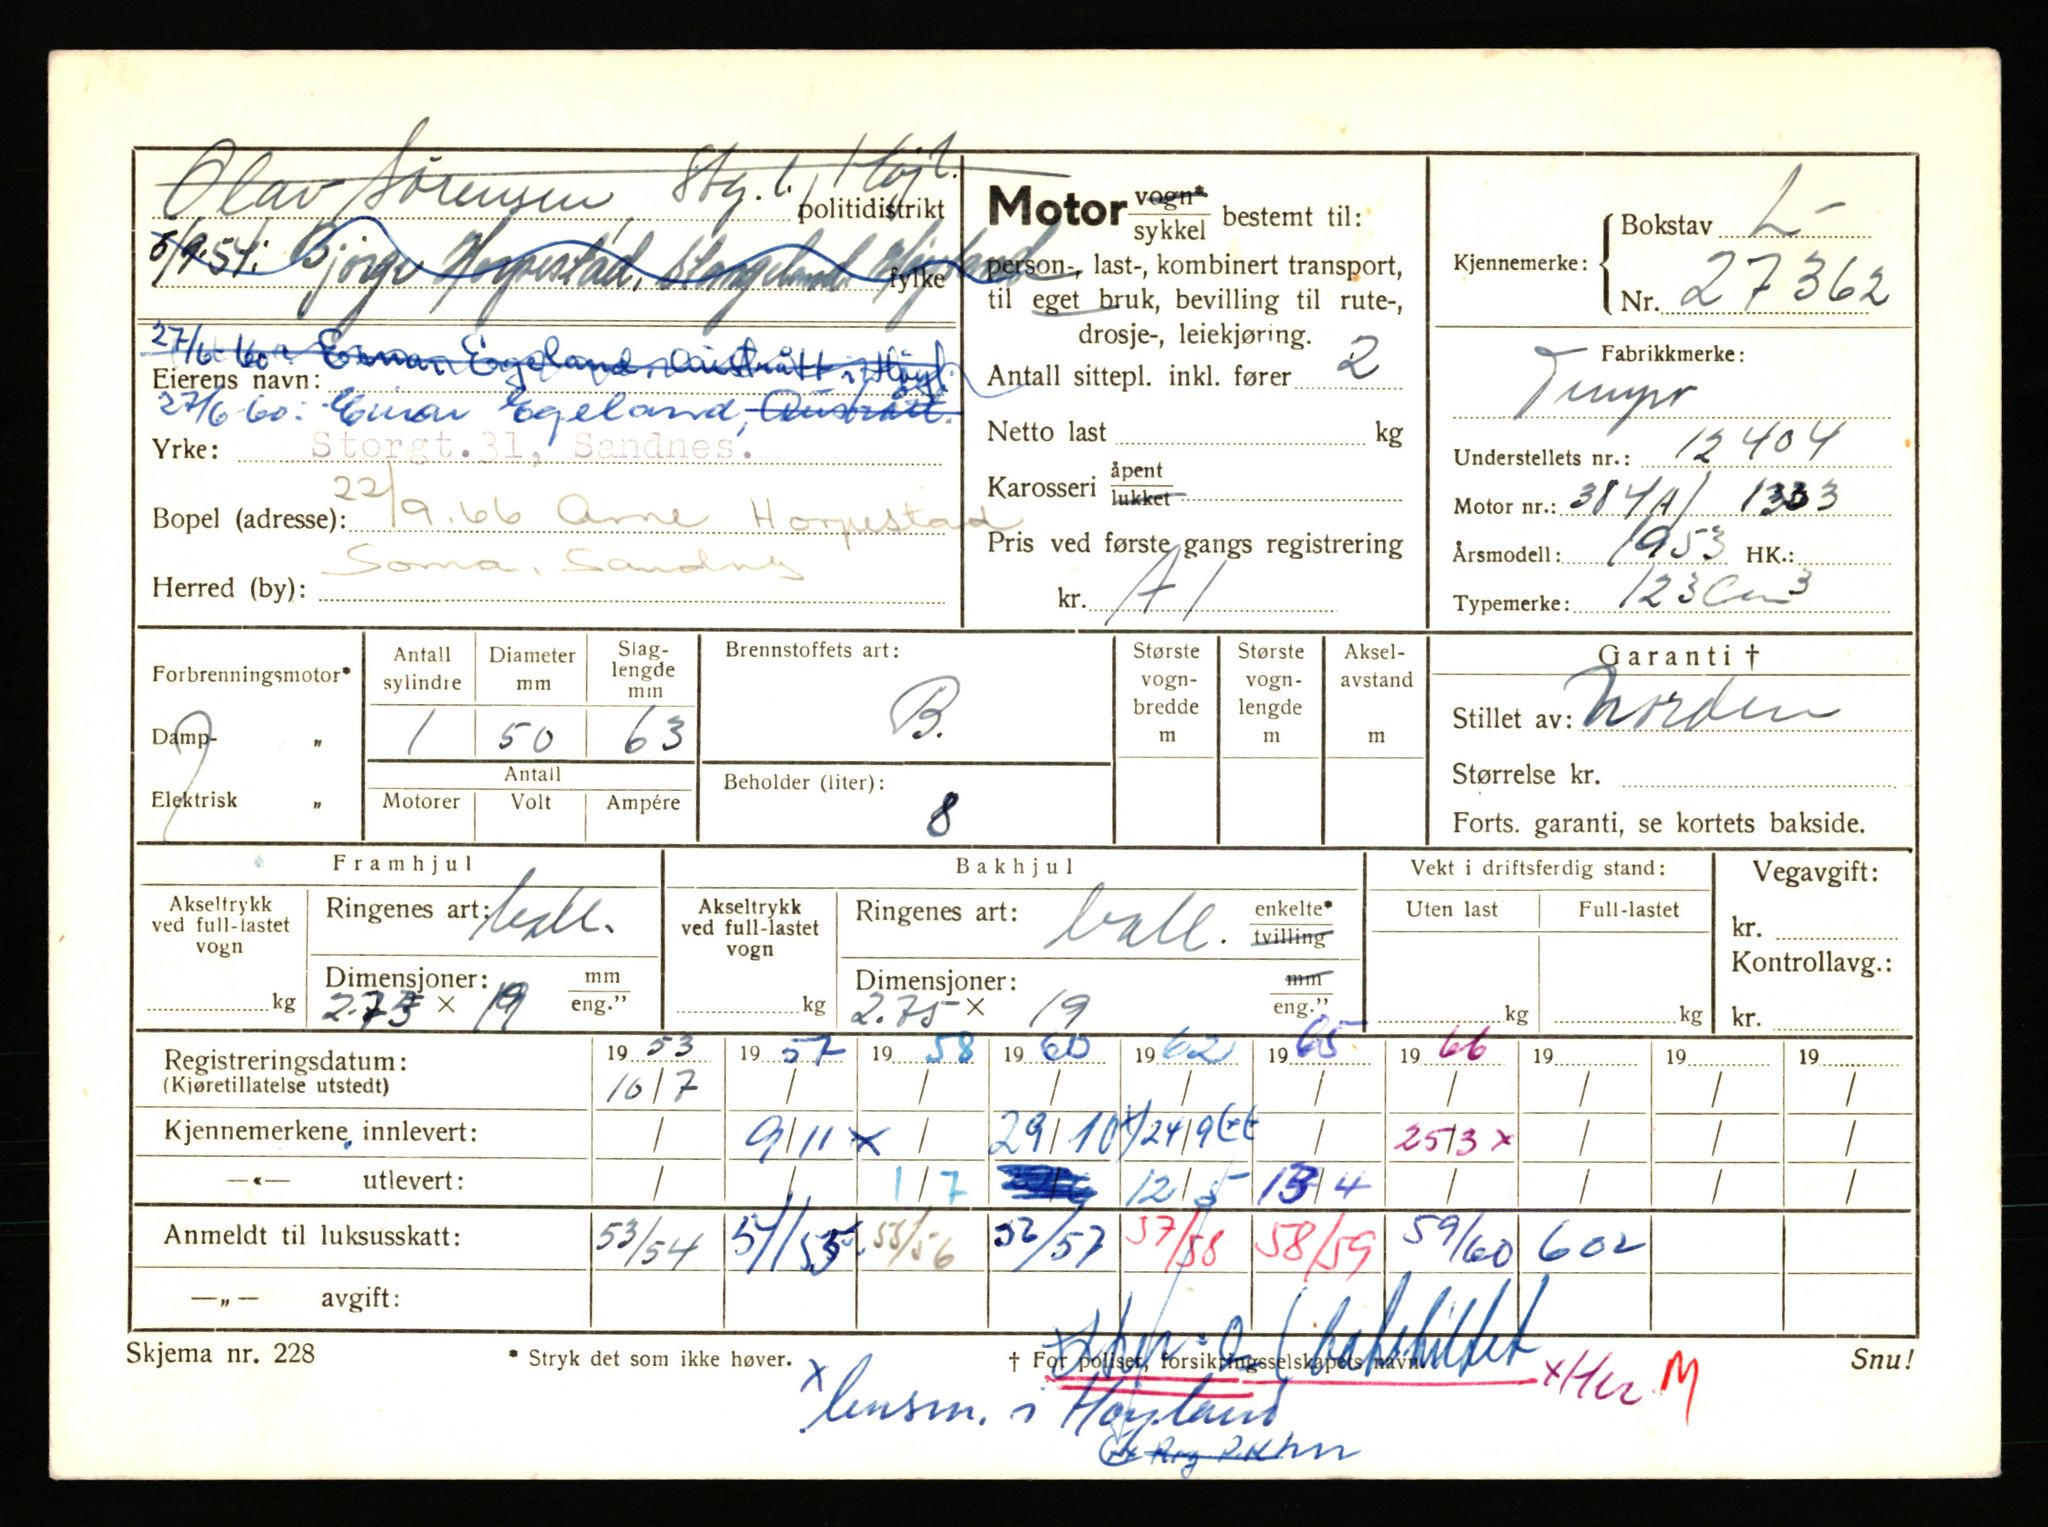 Olav Sörensen, Stg. l. Højl.
politidistrikt
5/9.54: Bjørge Horpestad, Stangeland Høyland
fylke
27/6-60: Einar Egeland, Austrått i Høyl.
Eierens navn:
27/6-60: Einar Egeland, Austrått.
Yrke: Storgt.31, Sandnes.
Bopel (adresse): 22/9.66 Arne Horpestad
Soma, Sandnes
Herred (by):
Motor vogn* sykkel bestemt til:
person-, last-, kombinert transport,
til eget bruk, bevilling til rute-,
drosje-, leiekjøring.
Antall sittepl. inkl. fører 2
Netto last kg
Karosseri åpent lukket
Pris ved første gangs registrering
kr. A1
Kjennemerke: Bokstav L-
Nr. 27362
Fabrikkmerke:
Tempo
Understellets nr.: 12404
Motor nr.: 384A/ 1333
Årsmodell: 1953 HK.:
Typemerke: 123 Cm3
Forbrenningsmotor*
Damp- „
Elektrisk „
Antall sylindre Diameter mm Slaglengde mm
1 50 63
Antall
Motorer Volt Ampére
Brennstoffets art:
B.
Beholder (liter):
8
Største vognbredde m
Største vognlengde m
Akselavstand m
Garanti †
Stillet av: Norden
Størrelse kr.
Forts. garanti, se kortets bakside.
Framhjul
Akseltrykk ved full-lastet vogn kg
Ringenes art: ball.
Dimensjoner: mm eng."
2.75 × 19
Bakhjul
Akseltrykk ved full-lastet vogn kg
Ringenes art: ball. enkelte* tvilling
Dimensjoner: mm eng."
2.75 × 19
Vekt i driftsferdig stand:
Uten last Full-lastet
kg kg
Vegavgift:
kr.
Kontrollavg.:
kr.
Registreringsdatum: 1953 1957 1958 1960 1962 1965 1966 19 19 19
(Kjøretillatelse utstedt) 10/7 / / / / / / / / /
Kjennemerkene innlevert: / 9/11 x / 29/10 24/9 / 25/3 x / / /
—«— utlevert: / / 1/7 12/5 13/4 / / / /
Anmeldt til luksusskatt: 53/54 54/55 55/56 56/57 57/58 58/59 59/60 602
—„— avgift:
Skjema nr. 228
* Stryk det som ikke høver.
† For poliset, forsikringsselskapets navn.
Snu!
x Her M
x lensm. i Høyland